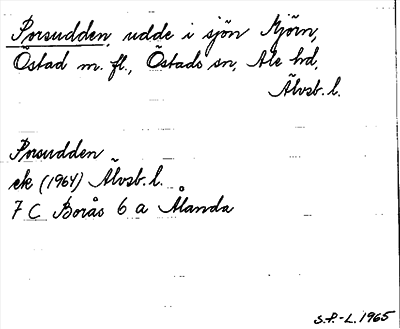 Porsudden, udde i sjön Mjörn,
Östad m. fl., Östads sn, Ale hd,
Älvsb. l.
Porsudden
ek (1964) Älvsb. l.
7 C Borås 6 a Ålanda
S.P.-L. 1965